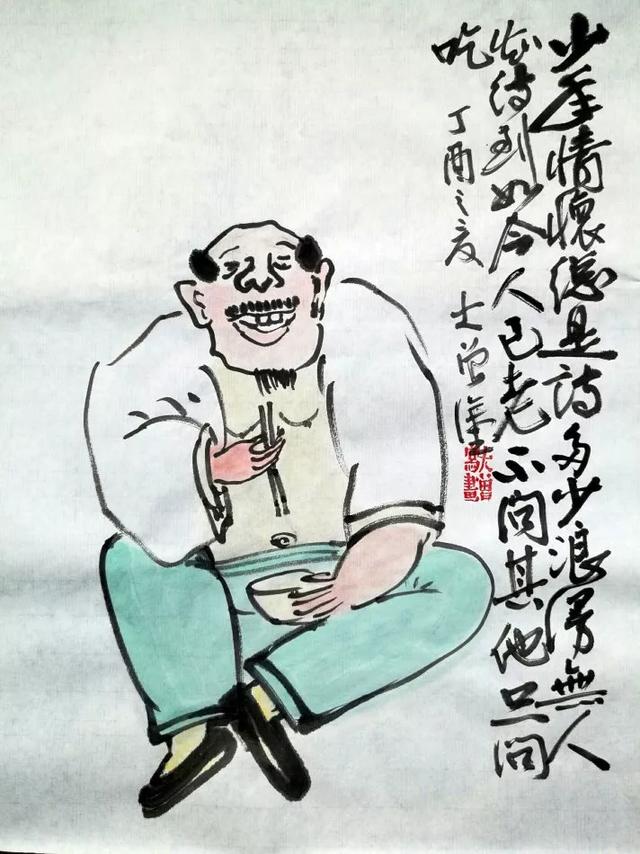 少年情懷總是詩多少浪漫無人
知待到如今人已老不问其他只问
吃
丁酉之夏 士曾溪